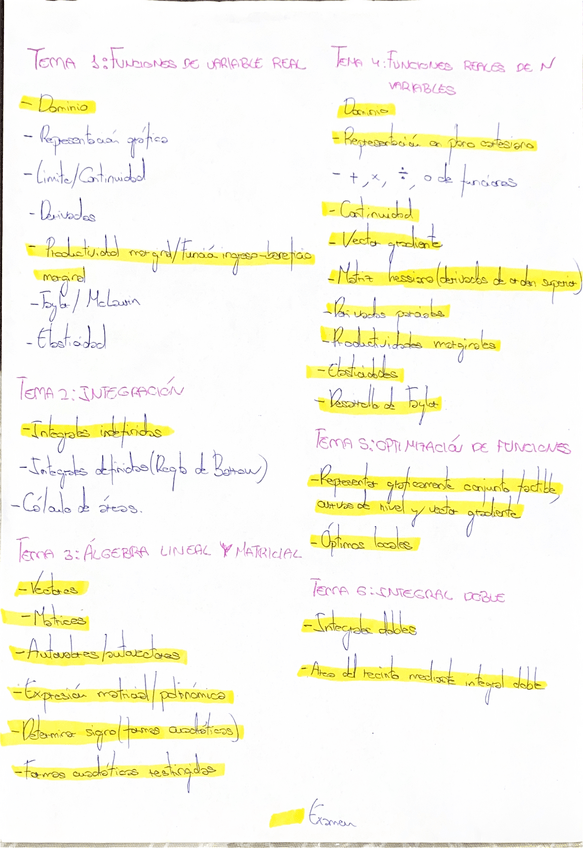 TEMA 1: FUNCIONES DE VARIABLE REAL
- Dominio
- Representación gráfica
- Límite/Continuidad
- Derivadas
- Productividad margnal/Función ingreso-beneficio
margnal
- Taylor / McLaurin
- Elasticidad
TEMA 2: INTEGRACIÓN
- Integrales indefinidas
- Integrales definidas (Regla de Barrow)
- Cálculo de áreas.
TEMA 3: ÁLGEBRA LINEAL Y MATRICIAL
- Vectores
- Matrices
- Autovalores/autovectores
- Expresión matricial/polinómica
- Determinar signo (formas cuadráticas)
- Formas cuadráticas restringidas
TEMA 4: FUNCIONES REALES DE N
VARIABLES
Dominio
- Representación en plano cartesiano
- +, ×, ÷, o de funciones
- Continuidad
- Vector gradiente
- Matriz hessiana (derivadas de orden superior)
- Derivadas parciales
- Productividades marginales
- Elasticidades
- Desarrollo de Taylor
TEMA 5: OPTIMIZACIÓN DE FUNCIONES
- Representar gráficamente conjunto factible,
curvas de nivel y vector gradiente
- Óptimos locales
TEMA 6: INTEGRAL DOBLE
- Integrales dobles
- Área del recinto mediante integral doble
- Examen